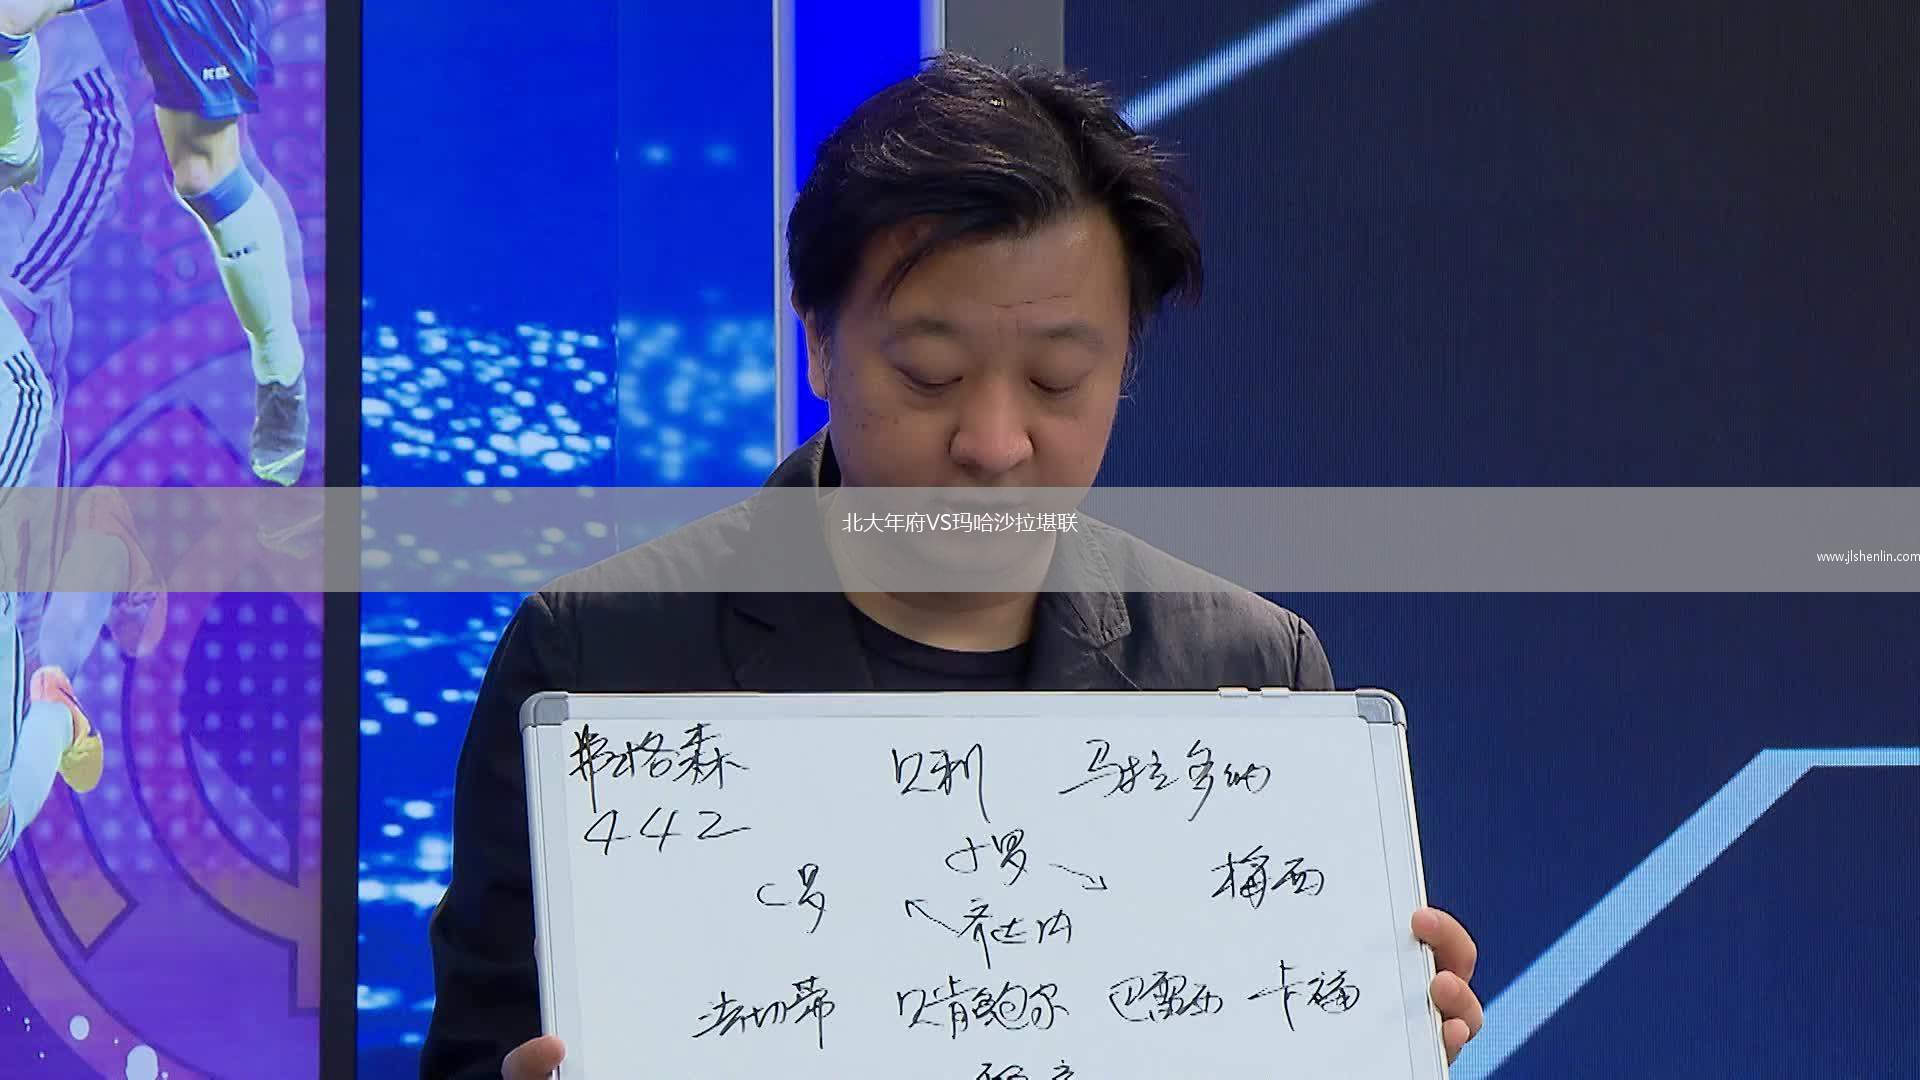 北大年府VS玛哈沙拉堪联
www.jlshenlin.com
弗格森 贝利 马拉多纳
442
小罗
C罗 梅西
齐达内
法切蒂 贝肯鲍尔 巴雷西 卡福